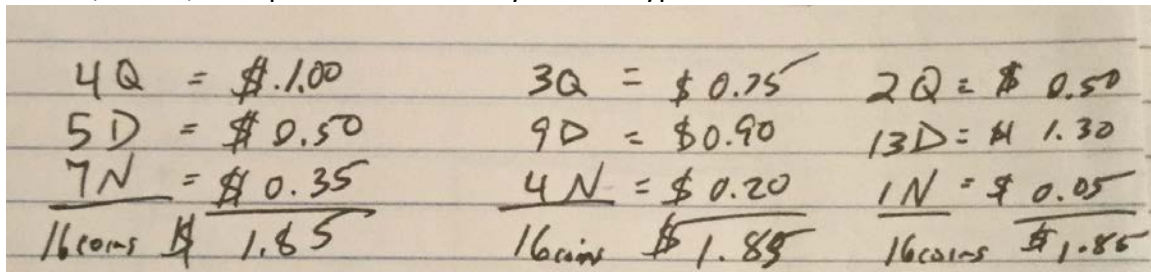 4Q = $.1.00
5D = $0.50
7N = $0.35
16 coins $1.85
3Q = $0.75
9D = $0.90
4N = $0.20
16 coins $1.85
2Q = $0.50
13D = $1.30
1N = $0.05
16 coins $1.85